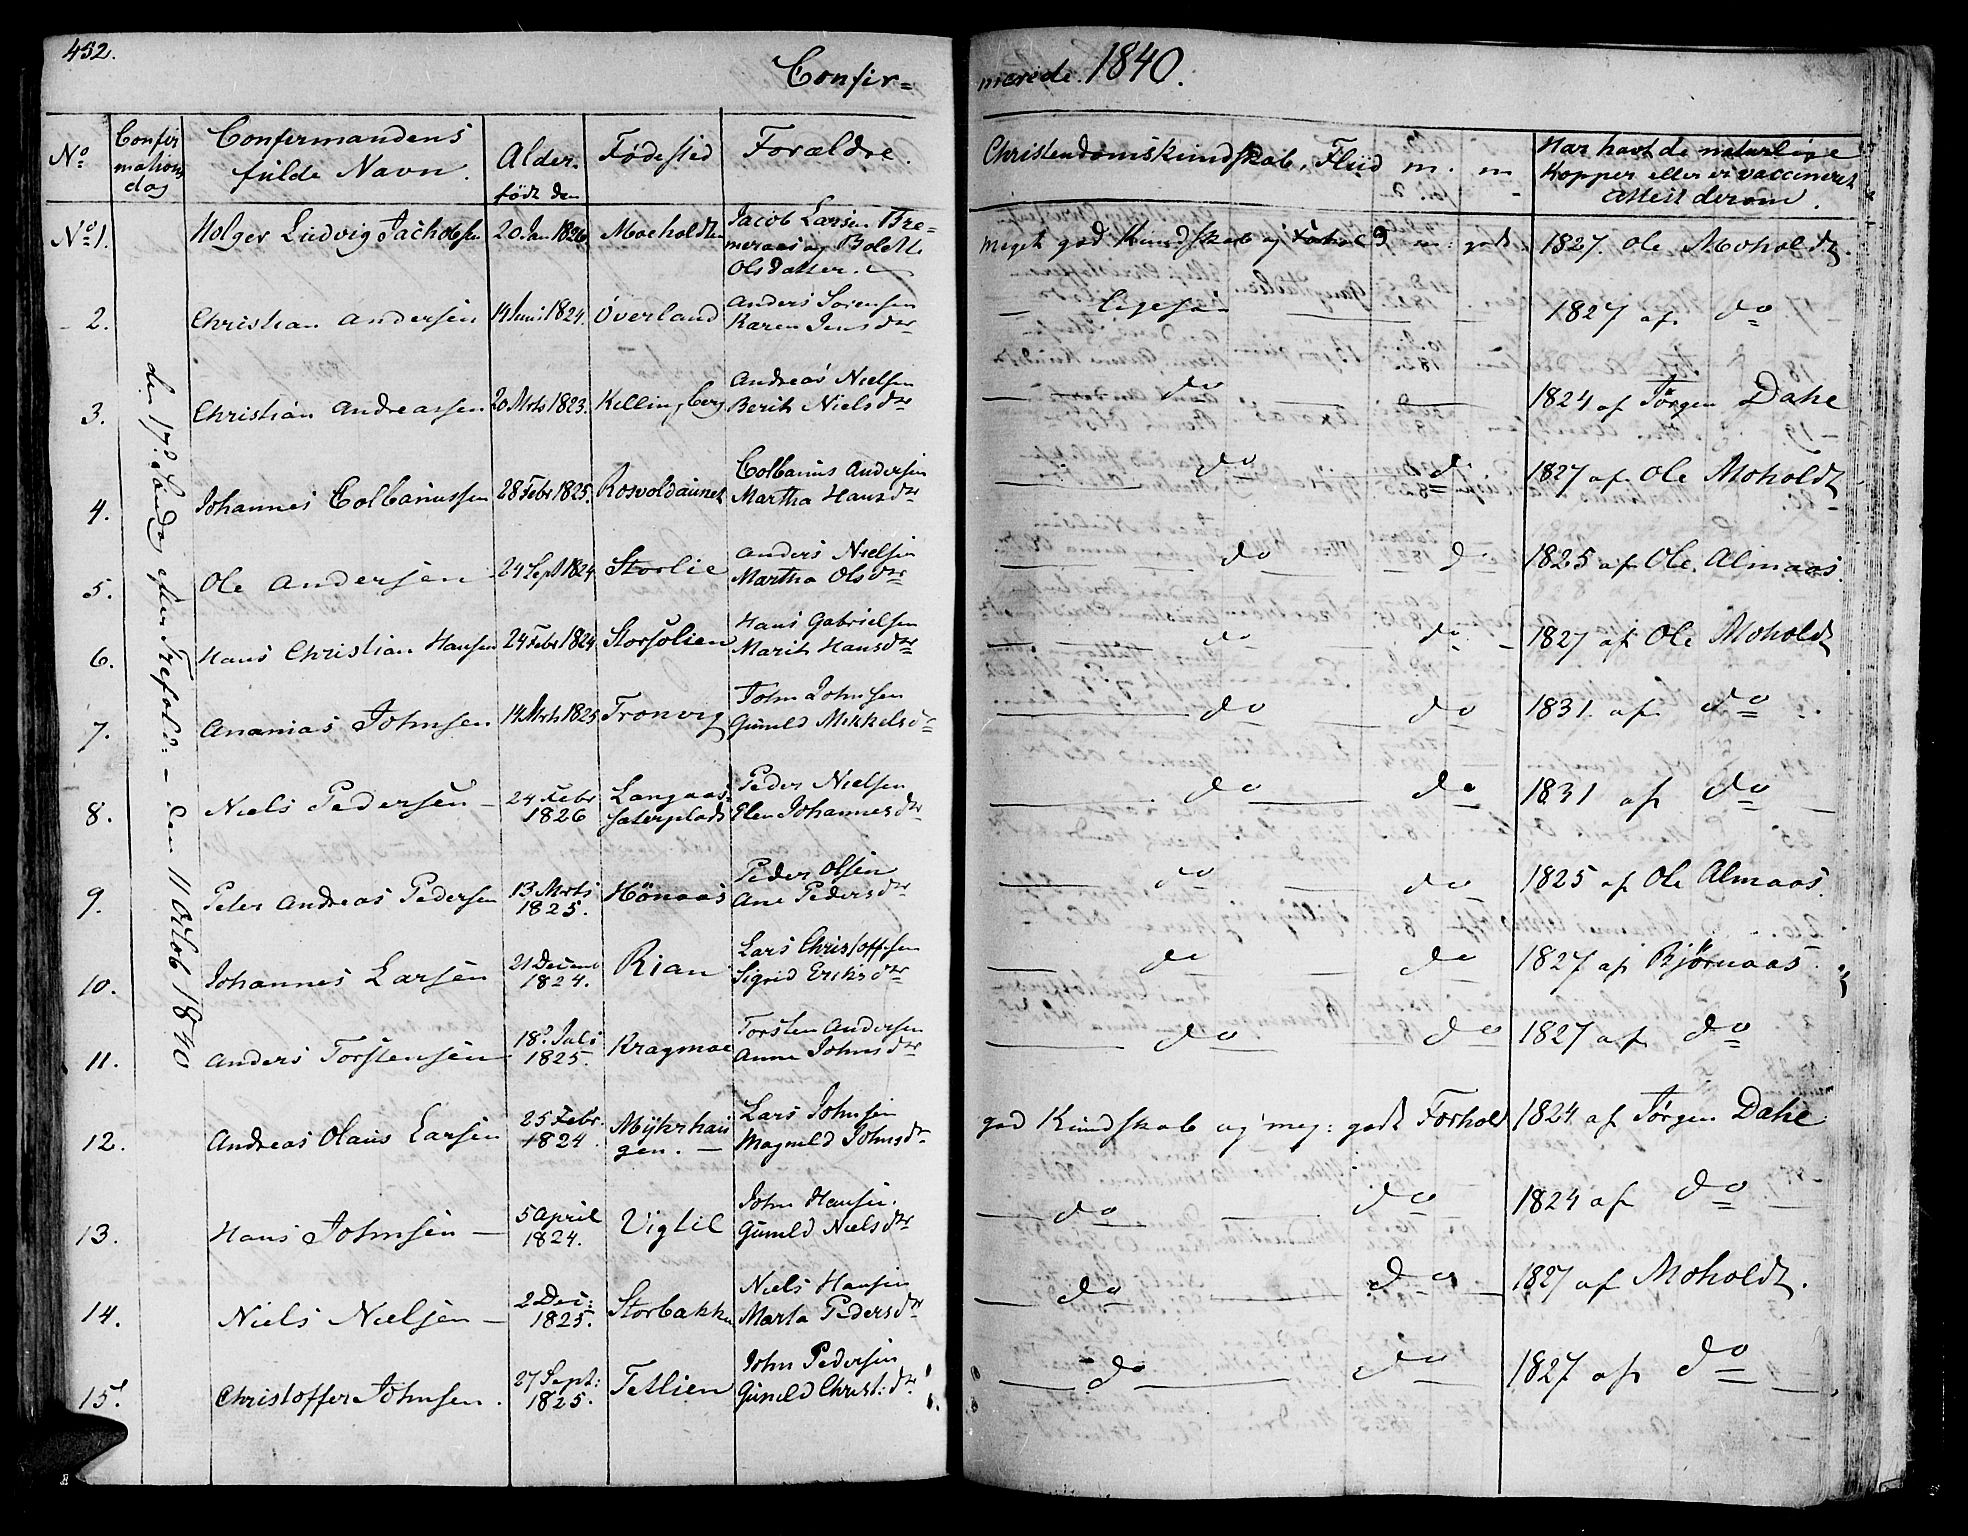 452.
Confir=
merede. 1840.
No
Confir
mations
dag
Confirmandens
fulde Navn.
Alder.
født den
Fødested
Forældre.
Christendomskundskab, Fliid m. m
Har havt de naturlige
Kopper eller er vaccineret
Attest derom.
den 17de Søndag efter Trefold: – den 11 Octob 1840
No 1.
Holger Ludvig Jachobsen
20 Jan 1826
Moeholdten
Jacob Larsen Bre=
meraas og Bolette
Olsdatter.
meget god Kundskab og Forhold m: godt
1827. Ole Moholdt.
2.
Christian Andersen
14 Juni 1824.
Överland
Anders Sørensen
Karen Jensdtr
ligesaa
1827 af do
3.
Christian Andreassen
20 Mrts 1823.
Killingberg
Andreas Nielsen
Berit Nielsdtr
do
1824 af Jørgen Dahl
4.
Johannes Colbanussen
28 Febr 1825.
Rosvoldaunet
Colbanus Andersen
Martha Hansdtr
do d:
1827 af Ole Moholdt
5.
Ole Andersen
24 Sept 1824
Storlie
Anders Nielsen
Martha Olsdtr
do d:
1825 af Ole Almaas.
6.
Hans Christian Hansen
24 Febr 1824
Storsolien
Hans Gabrielsen
Marit Hansdtr
do do
1827 af Ole Moholdt
7.
Ananias Johnsen
14 Mrts 1825
Tronvig
John Johnsen
Gunild Mikkelsdr
do do
1831 af do
8.
Niels Pedersen
24 Febr
1826
Langaas
saterplads
Peder Nielsen
Elen Johannesdr
do do
1831 af do
9.
Peter Andreas Pedersen
13 Mrts
1825.
Hönaas
Peder Olsen
Ane Pedersdtr
do do
1825 af Ole Almaas.
10.
Johannes Larsen
21 Decemb
1824.
Rian
Lars Christoffsen
Sigrid Eriksdtr
do do
1827 af Bjørnaas
11.
Anders Torstensen
18de Juli
1825.
Kragmoe
Torsten Andersen
Anne Johnsdtr
do do
1827 af do
12.
Andreas Olaus Larsen
25 Febr
1824.
Myhrhau
gen.
Lars Johnsen
Magnild Johnsdr
god Kundskab og meg: godt Forhold
1824 af Jørgen Dahl
13.
Hans Johnsen
5 April
1824.
Viglil
John Hansen.
Gunild Nielsdtr
do do
1824 af do
14.
Niels Nielsen
2 Dec:
1825.
Storbakken
Niels Hansen
Marta Pedersdtr
do do
1827 af Moholdt.
15.
Christoffer Johnsen.
27 Sept:
1825.
Tetlien
John Pedersen
Gunild Christ:dr.
do do
1827 af do